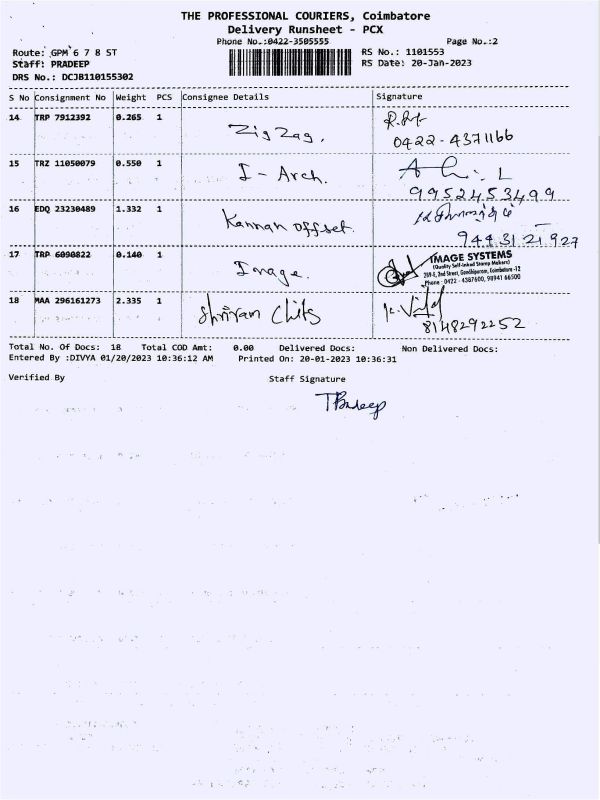 THE PROFESSIONAL COURIERS, Coimbatore
Delivery Runsheet - PCX
Phone No.:0422-3505555 Page No.:2
Route: GPM 6 7 8 ST RS No.: 1101553
Staff: PRADEEP RS Date: 20-Jan-2023
DRS No.: DCJB110155302
S No Consignment No Weight PCS Consignee Details Signature
14 TRP 7912392 0.265 1 Zig Zag.
0422-4371166
15 TRZ 11050079 0.550 1 I-Arch.
9952453499
16 EDQ 23230489 1.332 1 Kannan offset.
9443121927
17 TRP 6090822 0.140 1 Image. IMAGE SYSTEMS
(Quality Self-Inked Stamp Makers)
2nd Street, Gandhipuram, Coimbatore -12
Phone : 0422 - 4387600, 98941 66500
18 MAA 296161273 2.335 1 Shriram Chits
8148292252
Total No. Of Docs: 18 Total COD Amt: 0.00 Delivered Docs: Non Delivered Docs:
Entered By :DIVYA 01/20/2023 10:36:12 AM Printed On: 20-01-2023 10:36:31
Verified By Staff Signature